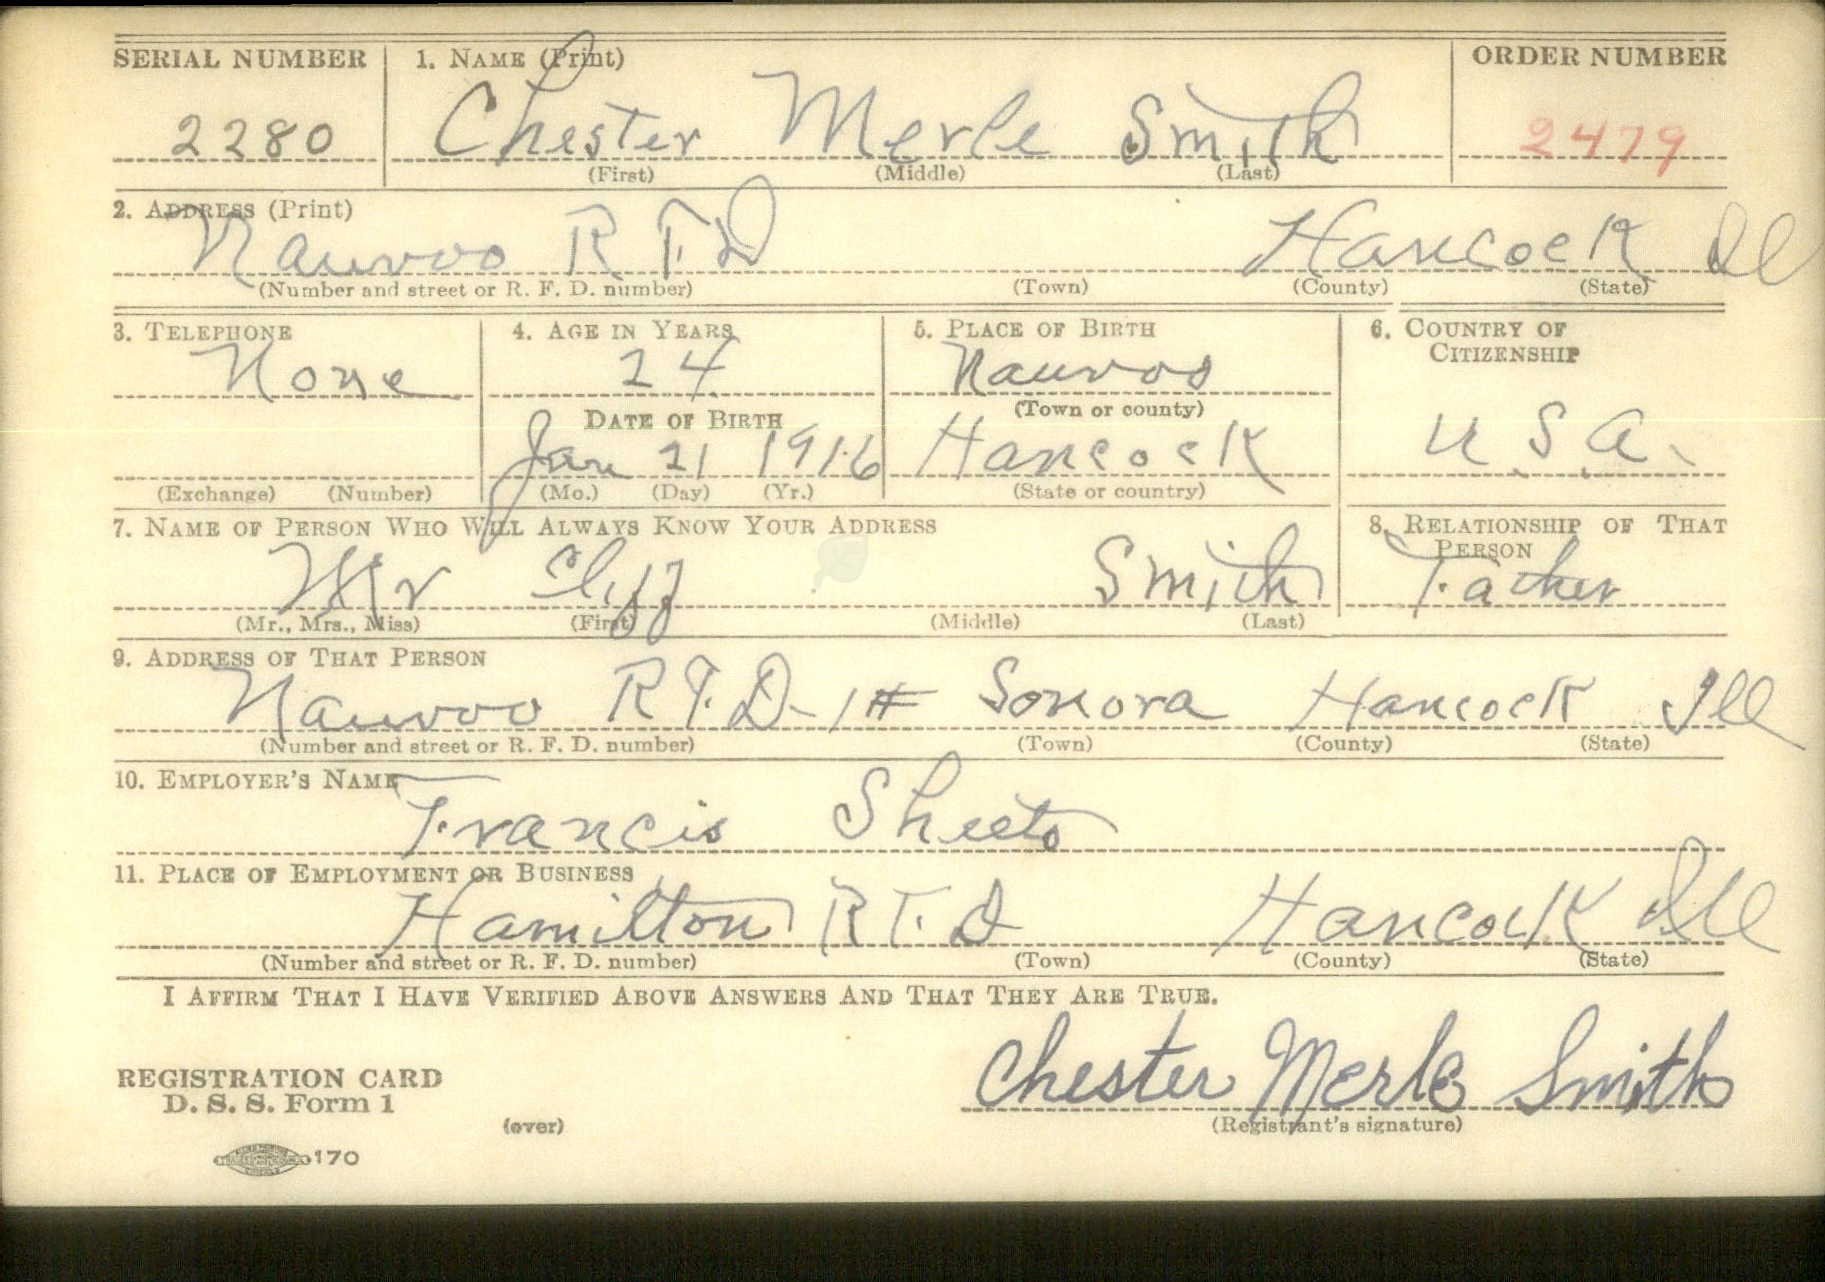 SERIAL NUMBER 1. NAME (Print) ORDER NUMBER
2280 Chester Merle Smith 2479
(First) (Middle) (Last)
2. ADDRESS (Print)
Nauvoo R F D Hancock Ill
(Number and street or R. F. D. number) (Town) (County) (State)
3. TELEPHONE 4. AGE IN YEARS 5. PLACE OF BIRTH 6. COUNTRY OF CITIZENSHIP
None 24 Nauvoo
DATE OF BIRTH (Town or county)
Jan 21 1916 Hancock U.S.A.
(Exchange) (Number) (Mo.) (Day) (Yr.) (State or country)
7. NAME OF PERSON WHO WILL ALWAYS KNOW YOUR ADDRESS 8. RELATIONSHIP OF THAT PERSON
Mr Cliff Smith Father
(Mr., Mrs., Miss) (First) (Middle) (Last)
9. ADDRESS OF THAT PERSON
Nauvoo R.F.D-1# Sonora Hancock Ill
(Number and street or R. F. D. number) (Town) (County) (State)
10. EMPLOYER'S NAME
Francis Sheets
11. PLACE OF EMPLOYMENT OR BUSINESS
Hamilton R F. D Hancock Ill
(Number and street or R. F. D. number) (Town) (County) (State)
I AFFIRM THAT I HAVE VERIFIED ABOVE ANSWERS AND THAT THEY ARE TRUE.
Chester Merle Smith
REGISTRATION CARD
D. S. S. Form 1
(over) (Registrant's signature)
170